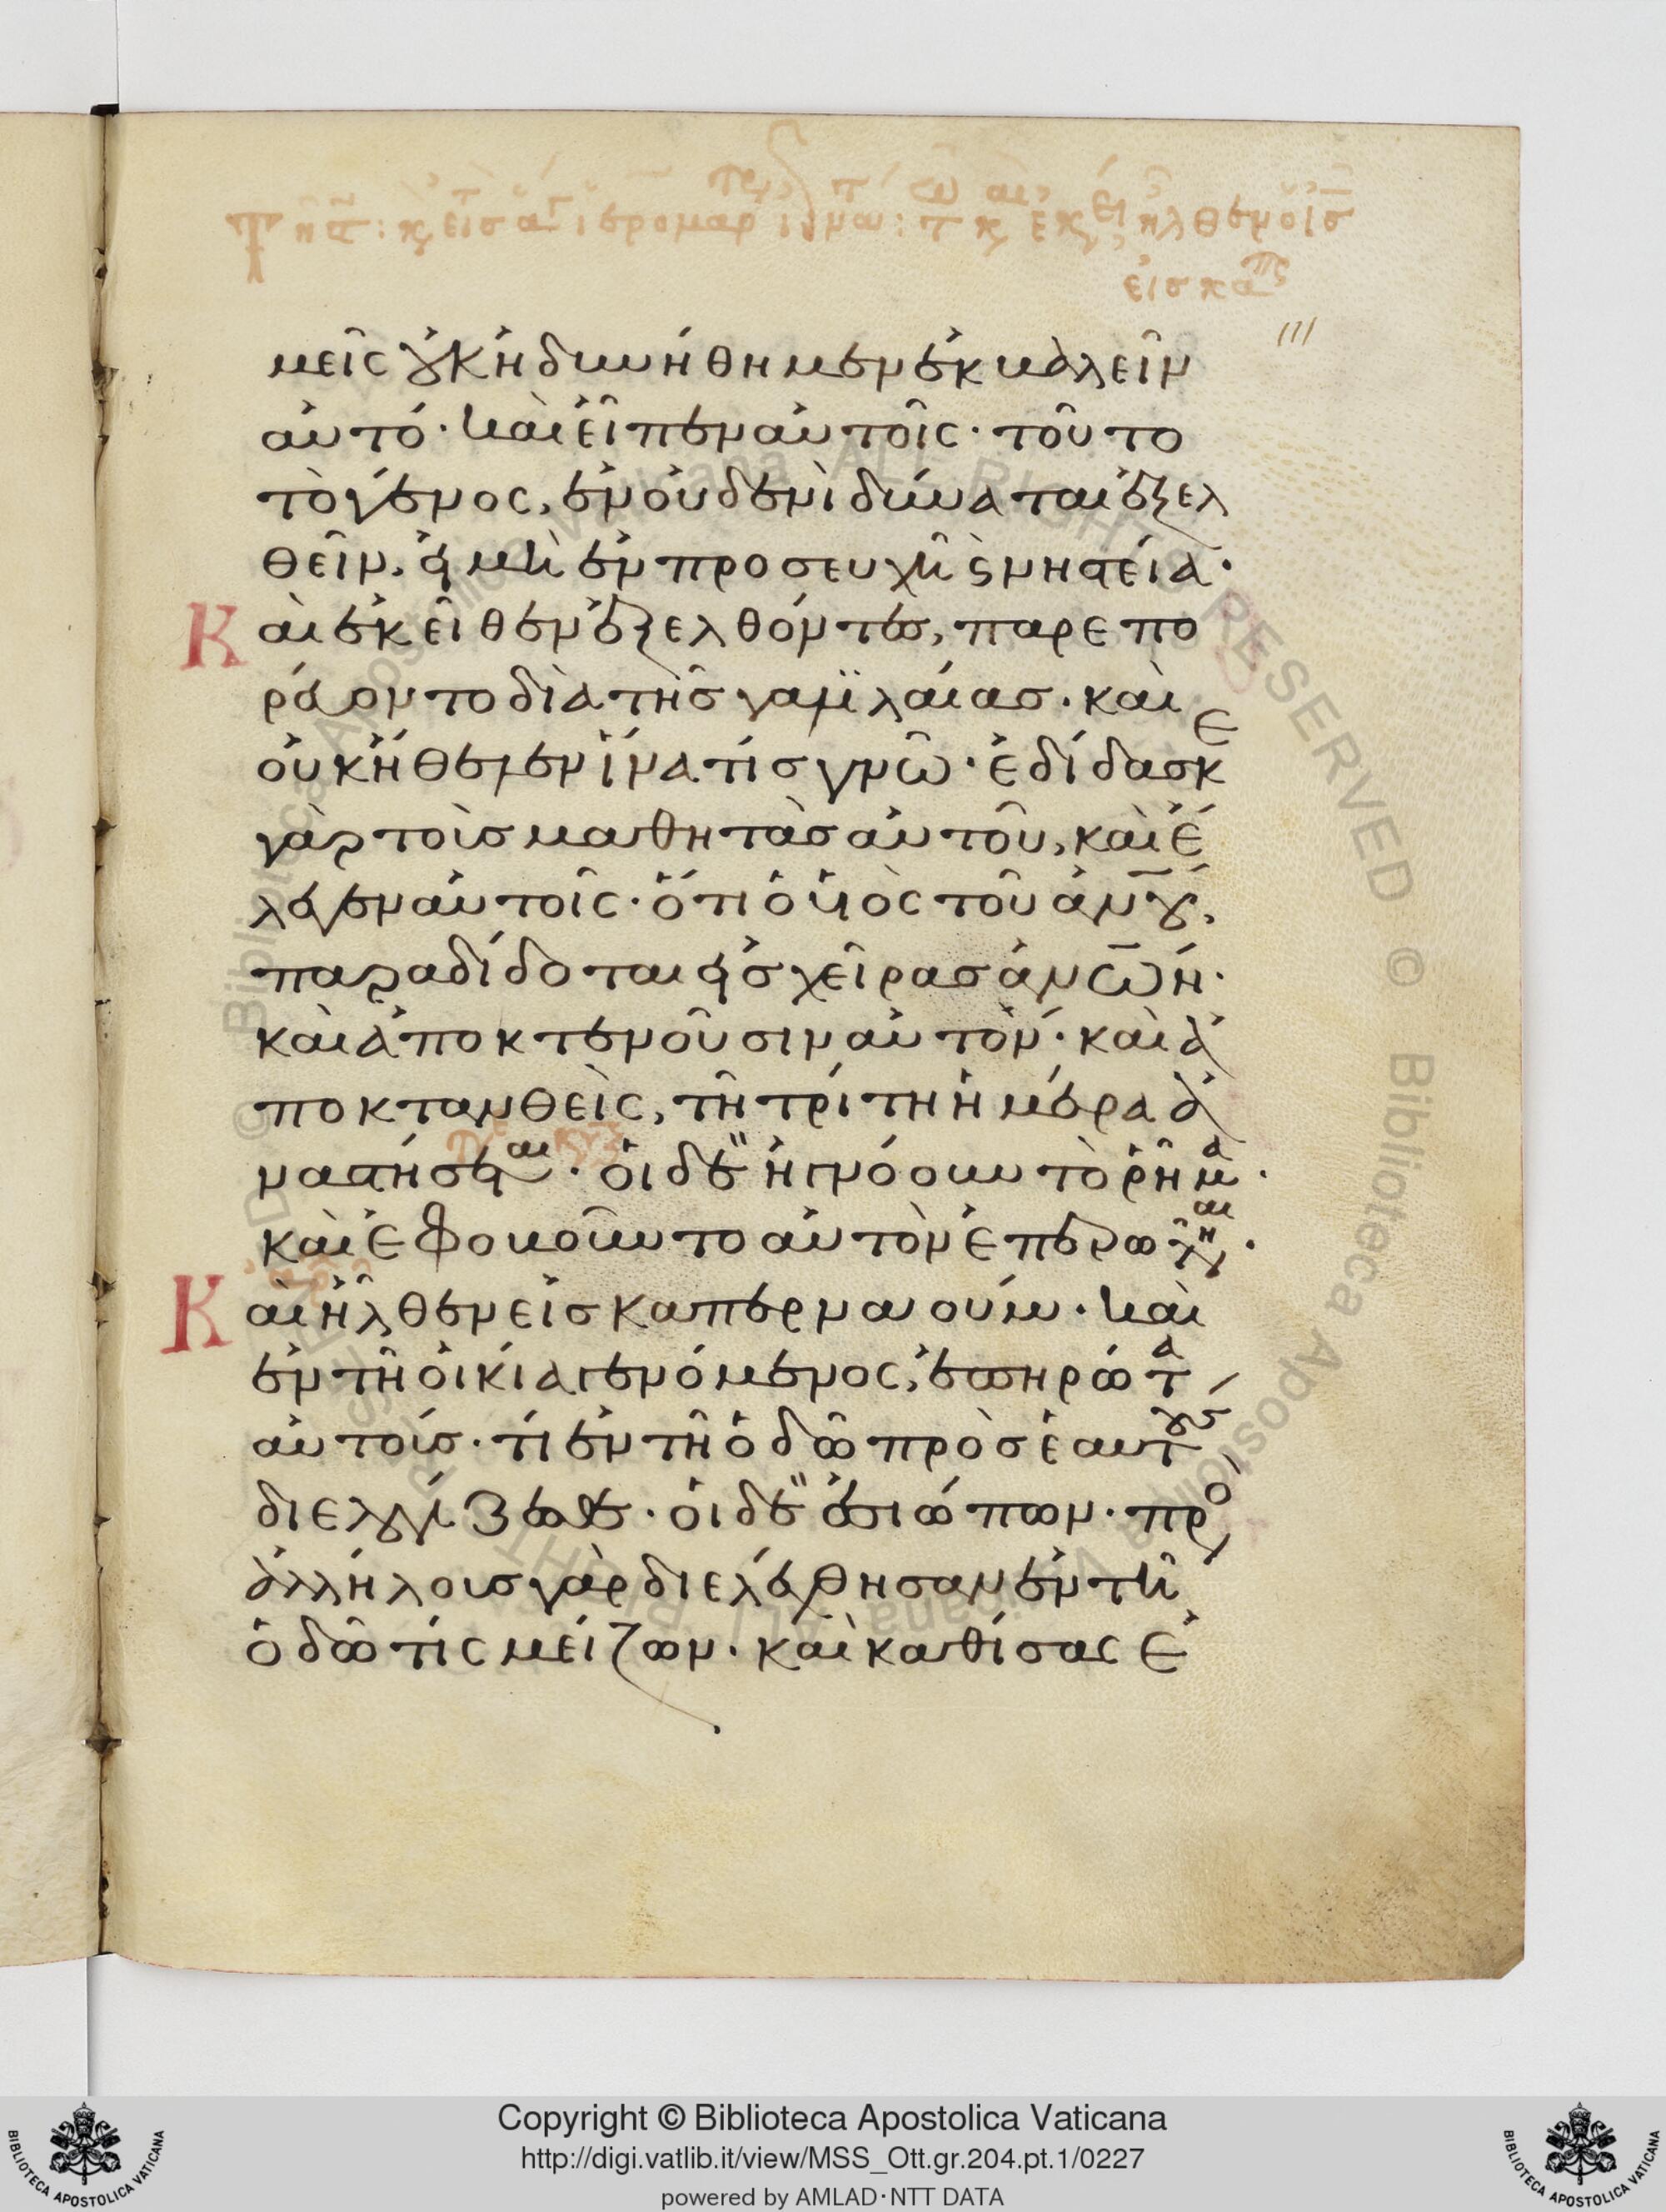 μεῖς οὐκ ἠδυνήθημεν ἐκβαλεῖν
αὐτό· καὶ εἶπεν αὐτοῖς· τοῦτο
τὸ γένος, ἐν οὐδενὶ δύναται ἐξελ
θεῖν, εἰ μὴ ἐν προσευχῆ ϗ νηστεία·
Καὶ ἐκεῖθεν ἐξελθόντες, παρεπο
ρεύοντο διὰ τῆς γαλιλαίας· καὶ
οὐκ ἤθελεν ἵνα τίς γνῶ· ἐδίδασκε
γὰρ τοὺς μαθητὰς αὐτοῦ, καὶ ἔ
λεγεν αὐτοῖς· ὅτι ὁ υἱὸς τοῦ ἀν̅ου̅,
παραδίδοται εἰς χεῖρας ἀν̅ων̅·
καὶ ἀποκτενοῦσιν αὐτόν· καὶ ἀ
ποκτανθεὶς, τῆ τρίτη ἡμέρα ἀ
ναστήσεται· οἱ δὲ ἠγνόουν τὸ ῥῆμα·
καὶ ἐφοβοῦντο αὐτὸν ἐπερωτῆσαι·
Καὶ ἦλθεν εἰς καπερναούμ· καὶ
ἐν τῆ οἰκία γενόμενος, ἐπηρώτα
αὐτούς· τί ἐν τῆ ὁδῶ πρὸς ἑαυτοὺς
διελογίζεσθε· οἱ δὲ ἐσιώπων· πρὸς
ἀλλήλους γὰρ διελέχθησαν ἐν τῆ
ὁδῶ τίς μείζων· καὶ καθίσας ἐ
Copyright © Biblioteca Apostolica Vaticana
http://digi.vatlib.it/view/MSS_Ott.gr.204.pt.1/0227
powered by AMLAD·NTT DATA
BIBLIOTECA APOSTOLICA VATICANA
BIBLIOTECA APOSTOLICA VATICANA